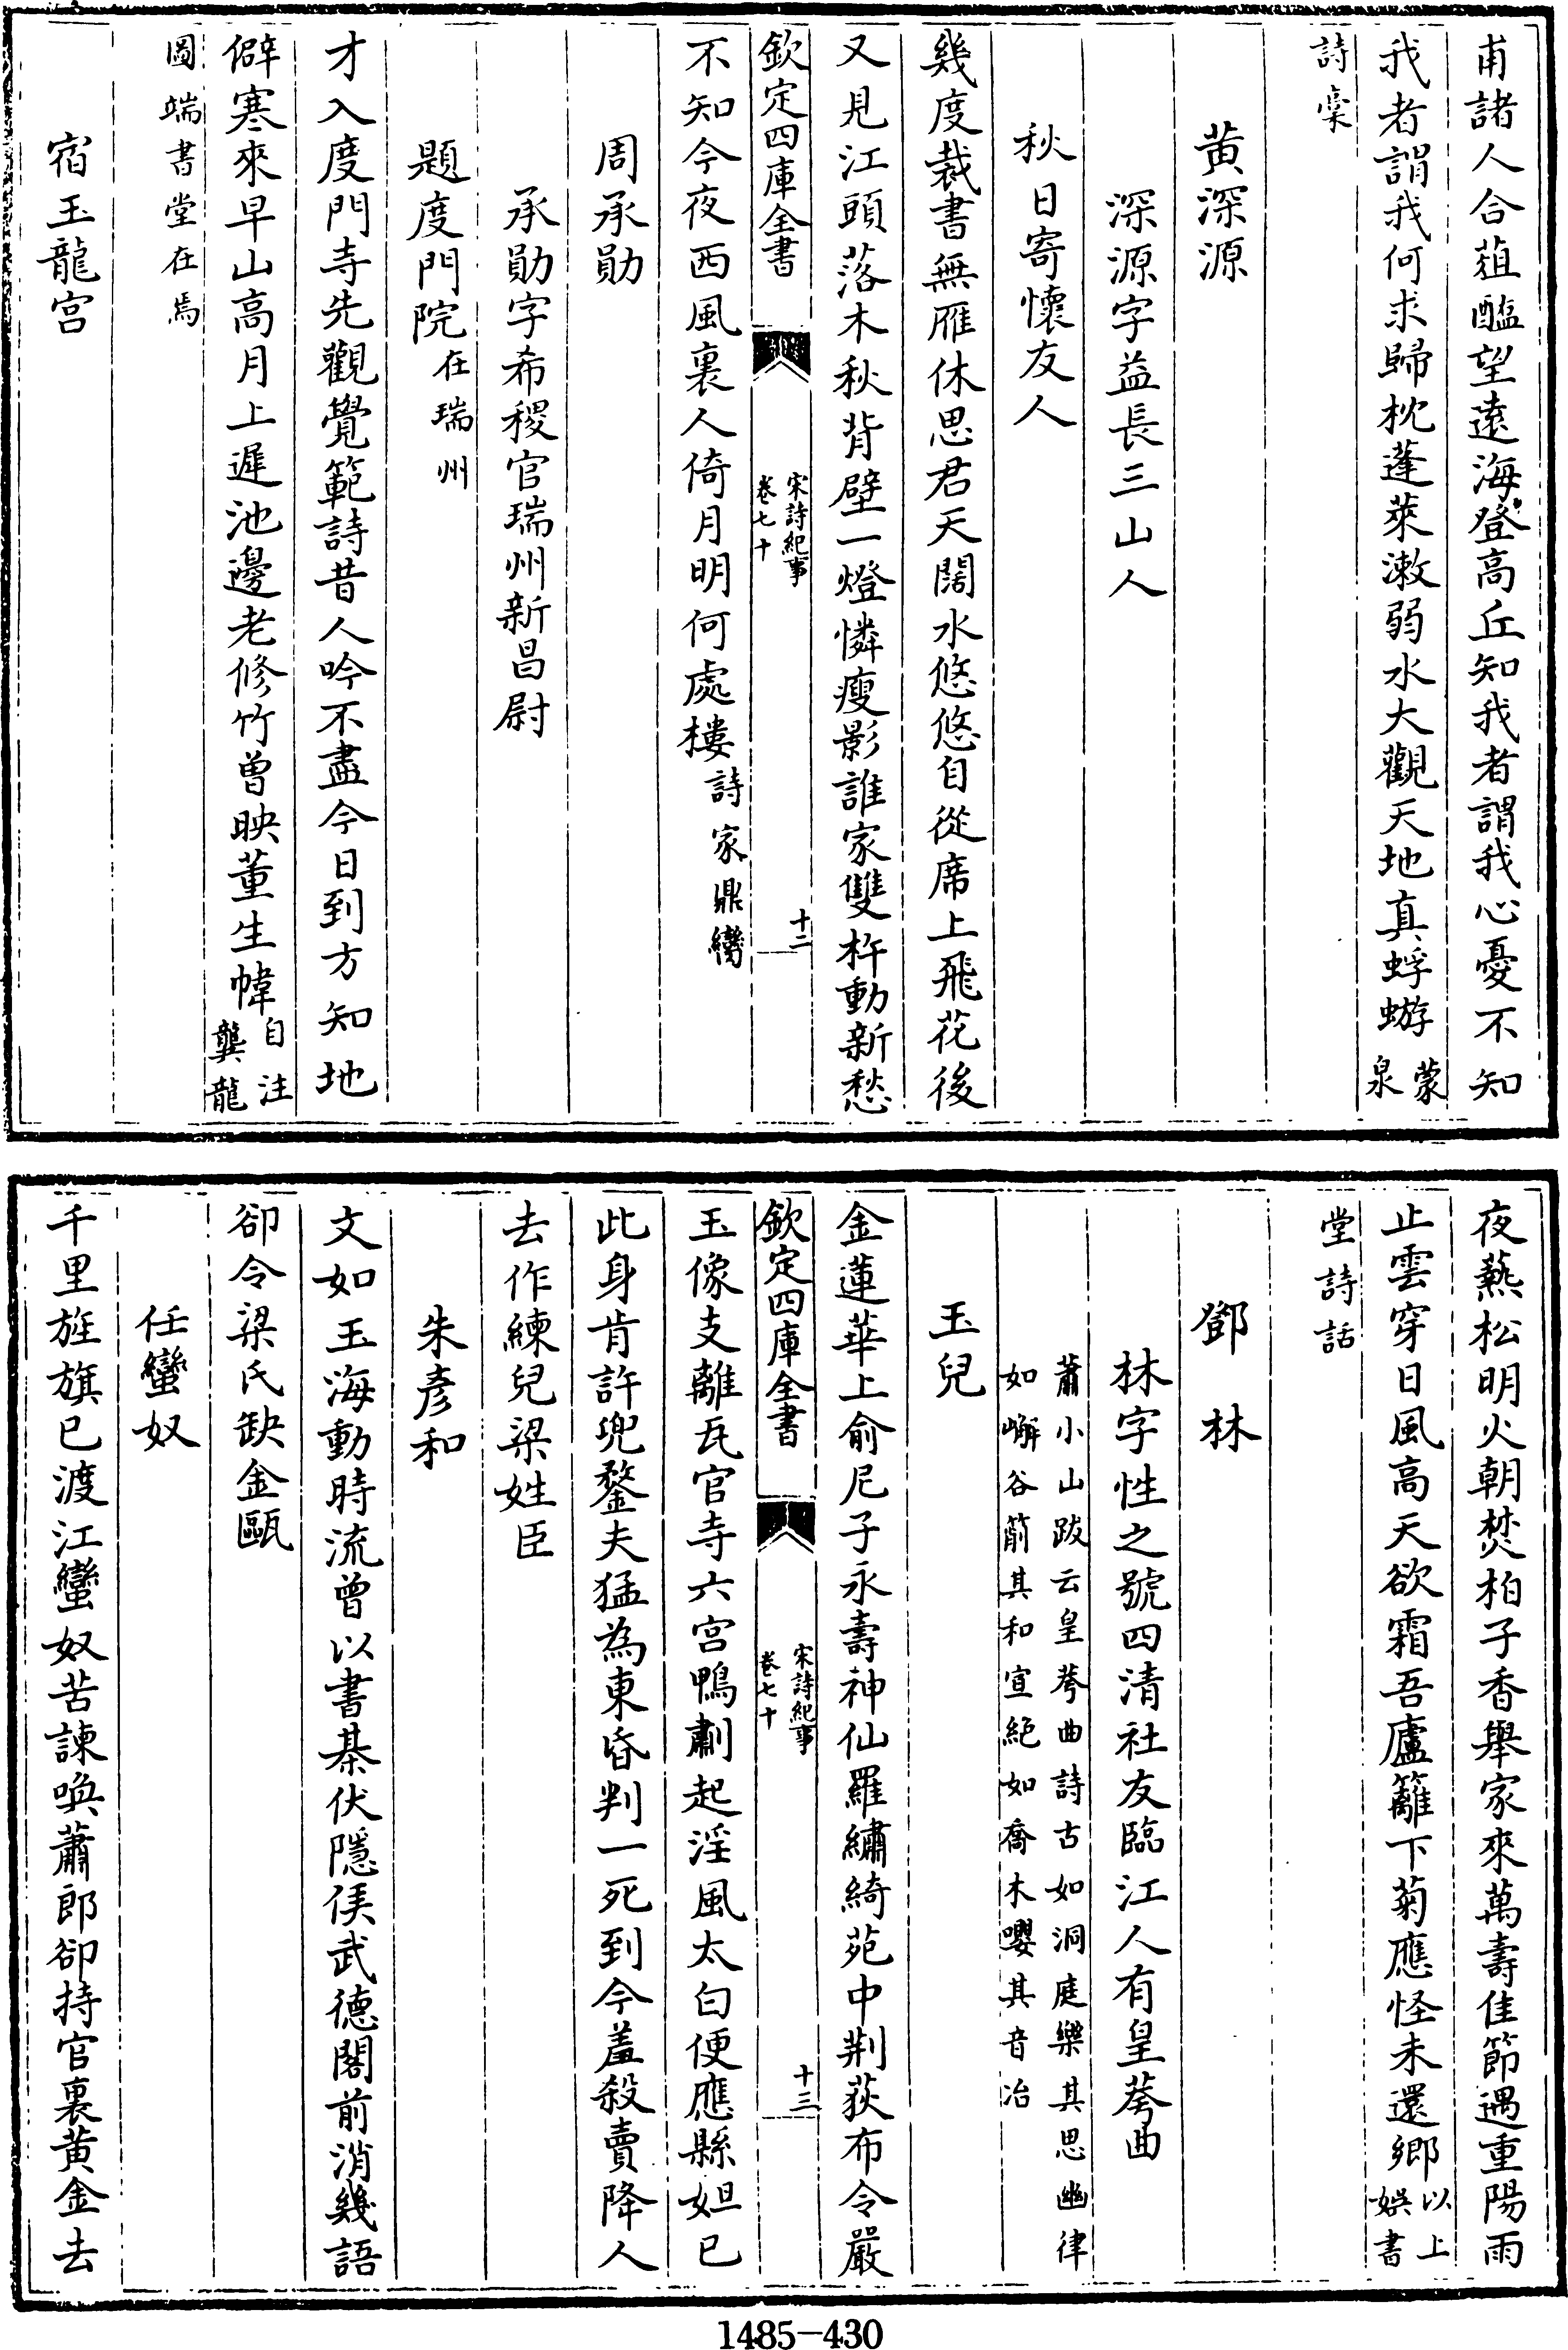 甫諸人合葅醢望遠海登高丘知我者謂我心憂不知
我者謂我何求歸枕蓬萊漱弱水大觀天地真蜉蝣蒙泉
詩稾
黃深源
深源字益長三山人
秋日寄懷友人
幾度裁書無雁休思君天闊水悠悠自從席上飛花後
又見江頭落木秋背壁一燈憐瘦影誰家雙杵動新愁
欽定四庫全書 宋詩紀事 卷七十 十二
不知今夜西風裏人倚月明何處樓詩家鼎臠
周承勛
承勛字希稷官瑞州新昌尉
題度門院在瑞州
才入度門寺先觀覺範詩昔人吟不盡今日到方知地
僻寒來早山高月上遲池邊老修竹曾映董生幃自注龔龍
圖端書堂在焉
宿玉龍宫
夜爇松明火朝焚柏子香舉家來萬壽佳節遇重陽雨
止雲穿日風高天欲霜吾廬籬下菊應怪未還鄉以上娛書
堂詩話
鄧林
林字性之號四清社友臨江人有皇荂曲
蕭小山跋云皇荂曲詩古如洞庭樂其思幽律
如嶰谷筩其和宣絕如喬木嚶其音冶
玉兒
金蓮華上俞尼子永壽神仙羅繡綺苑中荆荻布令嚴
欽定四庫全書 宋詩紀事 卷七十 十三
玉像支離瓦官寺六宫鴨劀起淫風太白便應縣妲已
此身肯許兜鍪夫猛為東昏判一死到今羞殺賣降人
去作練兒梁姓臣
朱彥和
文如玉海動時流曾以書棊伏隱侯武德閣前消幾語
卻令梁氏缺金甌
任蠻奴
千里旌旗已渡江蠻奴苦諫喚蕭郎卻持官裏黃金去
1485-430